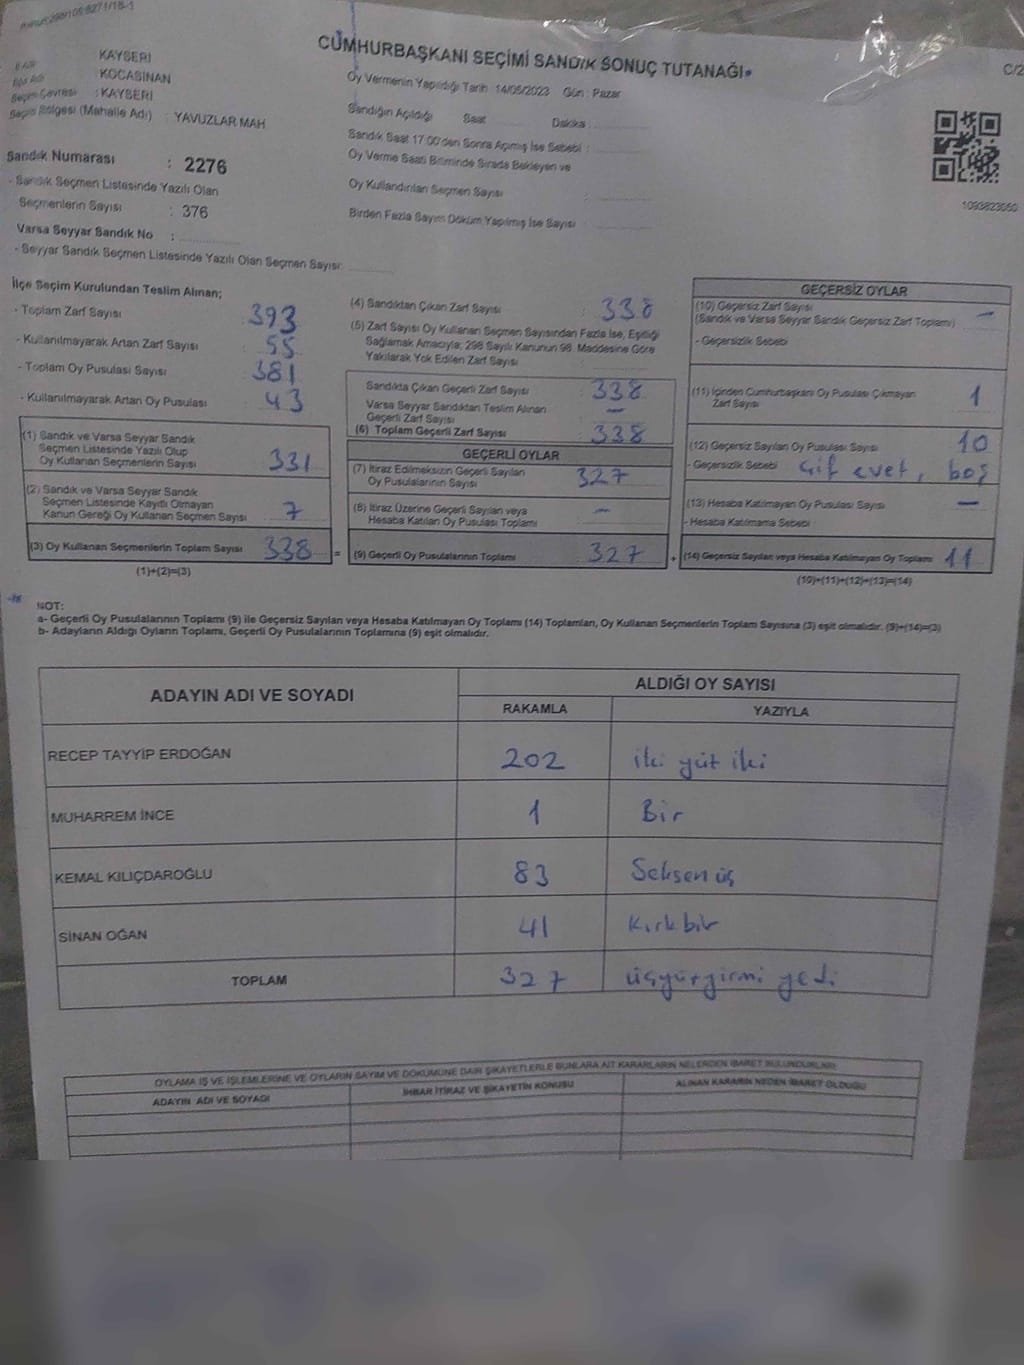 CUMHURBAŞKANI SEÇİMİ SANDIK SONUÇ TUTANAĞI
C/2
İl Adı KAYSERİ
İlçe Adı KOCASİNAN
Seçim Çevresi : KAYSERİ
Seçim Bölgesi (Mahalle Adı) : YAVUZLAR MAH
Sandık Numarası : 2276
- Sandık Seçmen Listesinde Yazılı Olan
Seçmenlerin Sayısı : 376
Varsa Seyyar Sandık No :
- Seyyar Sandık Seçmen Listesinde Yazılı Olan Seçmen Sayısı:
Oy Vermenin Yapıldığı Tarih 14/05/2023 Gün : Pazar
Sandığın Açıldığı Saat Dakika :
Sandık Saat 17:00'den Sonra Açımış İse Sebebi :
Oy Verme Saati Bitiminde Sırada Bekleyen ve
Oy Kullandırılan Seçmen Sayısı
Birden Fazla Sayım Döküm Yapılmış İse Sayısı
1093823060
İlçe Seçim Kurulundan Teslim Alınan;
- Toplam Zarf Sayısı : 393
- Kullanılmayarak Artan Zarf Sayısı : 55
- Toplam Oy Pusulası Sayısı : 381
- Kullanılmayarak Artan Oy Pusulası : 43
(1) Sandık ve Varsa Seyyar Sandık
Seçmen Listesinde Yazılı Olup
Oy Kullanan Seçmenlerin Sayısı 331
(2) Sandık ve Varsa Seyyar Sandık
Seçmen Listesinde Kayıtlı Olmayan
Kanun Gereği Oy Kullanan Seçmen Sayısı 7
(3) Oy Kullanan Seçmenlerin Toplam Sayısı 338 =
(1)+(2)=(3)
(4) Sandıktan Çıkan Zarf Sayısı : 338
(5) Zarf Sayısı Oy Kullanan Seçmen Sayısından Fazla İse, Eşitliği
Sağlamak Amacıyla; 298 Sayılı Kanunun 98. Maddesine Göre
Yakılarak Yok Edilen Zarf Sayısı :
Sandıkta Çıkan Geçerli Zarf Sayısı : 338
Varsa Seyyar Sandıktan Teslim Alınan
Geçerli Zarf Sayısı : –
(6) Toplam Geçerli Zarf Sayısı : 338
GEÇERLİ OYLAR
(7) İtiraz Edilmeksizin Geçerli Sayılan
Oy Pusulalarının Sayısı 327
(8) İtiraz Üzerine Geçerli Sayılan veya
Hesaba Katılan Oy Pusulası Toplamı –
(9) Geçerli Oy Pusulalarının Toplamı 327 +
GEÇERSİZ OYLAR
(10) Geçersiz Zarf Sayısı –
(Sandık ve Varsa Seyyar Sandık Geçersiz Zarf Toplamı)
- Geçersizlik Sebebi
(11) İçinden Cumhurbaşkanı Oy Pusulası Çıkmayan
Zarf Sayısı 1
(12) Geçersiz Sayılan Oy Pusulası Sayısı 10
- Geçersizlik Sebebi Çif evet, boş
(13) Hesaba Katılmayan Oy Pusulası Sayısı –
- Hesaba Katılmama Sebebi
(14) Geçersiz Sayılan veya Hesaba Katılmayan Oy Toplamı 11
(10)+(11)+(12)+(13)=(14)
NOT:
a- Geçerli Oy Pusulalarının Toplamı (9) ile Geçersiz Sayılan veya Hesaba Katılmayan Oy Toplamı (14) Toplamları, Oy Kullanan Seçmenlerin Toplam Sayısına (3) eşit olmalıdır. (9)+(14)=(3)
b- Adayların Aldığı Oyların Toplamı, Geçerli Oy Pusulalarının Toplamına (9) eşit olmalıdır.
ADAYIN ADI VE SOYADI ALDIĞI OY SAYISI
RAKAMLA YAZIYLA
RECEP TAYYİP ERDOĞAN 202 iki yüt iki
MUHARREM İNCE 1 Bir
KEMAL KILIÇDAROĞLU 83 Seksen üç
SİNAN OĞAN 41 Kırk bir
TOPLAM 327 üçyüzyirmi yedi
OYLAMA İŞ VE İŞLEMLERİNE VE OYLARIN SAYIM VE DÖKÜMÜNE DAİR ŞİKAYETLERLE BUNLARA AİT KARARLARIN NELERDEN İBARET BULUNDUKLARI
ADAYIN ADI VE SOYADI İHBAR İTİRAZ VE ŞİKAYETİN KONUSU ALINAN KARARIN NEDEN İBARET OLDUĞU